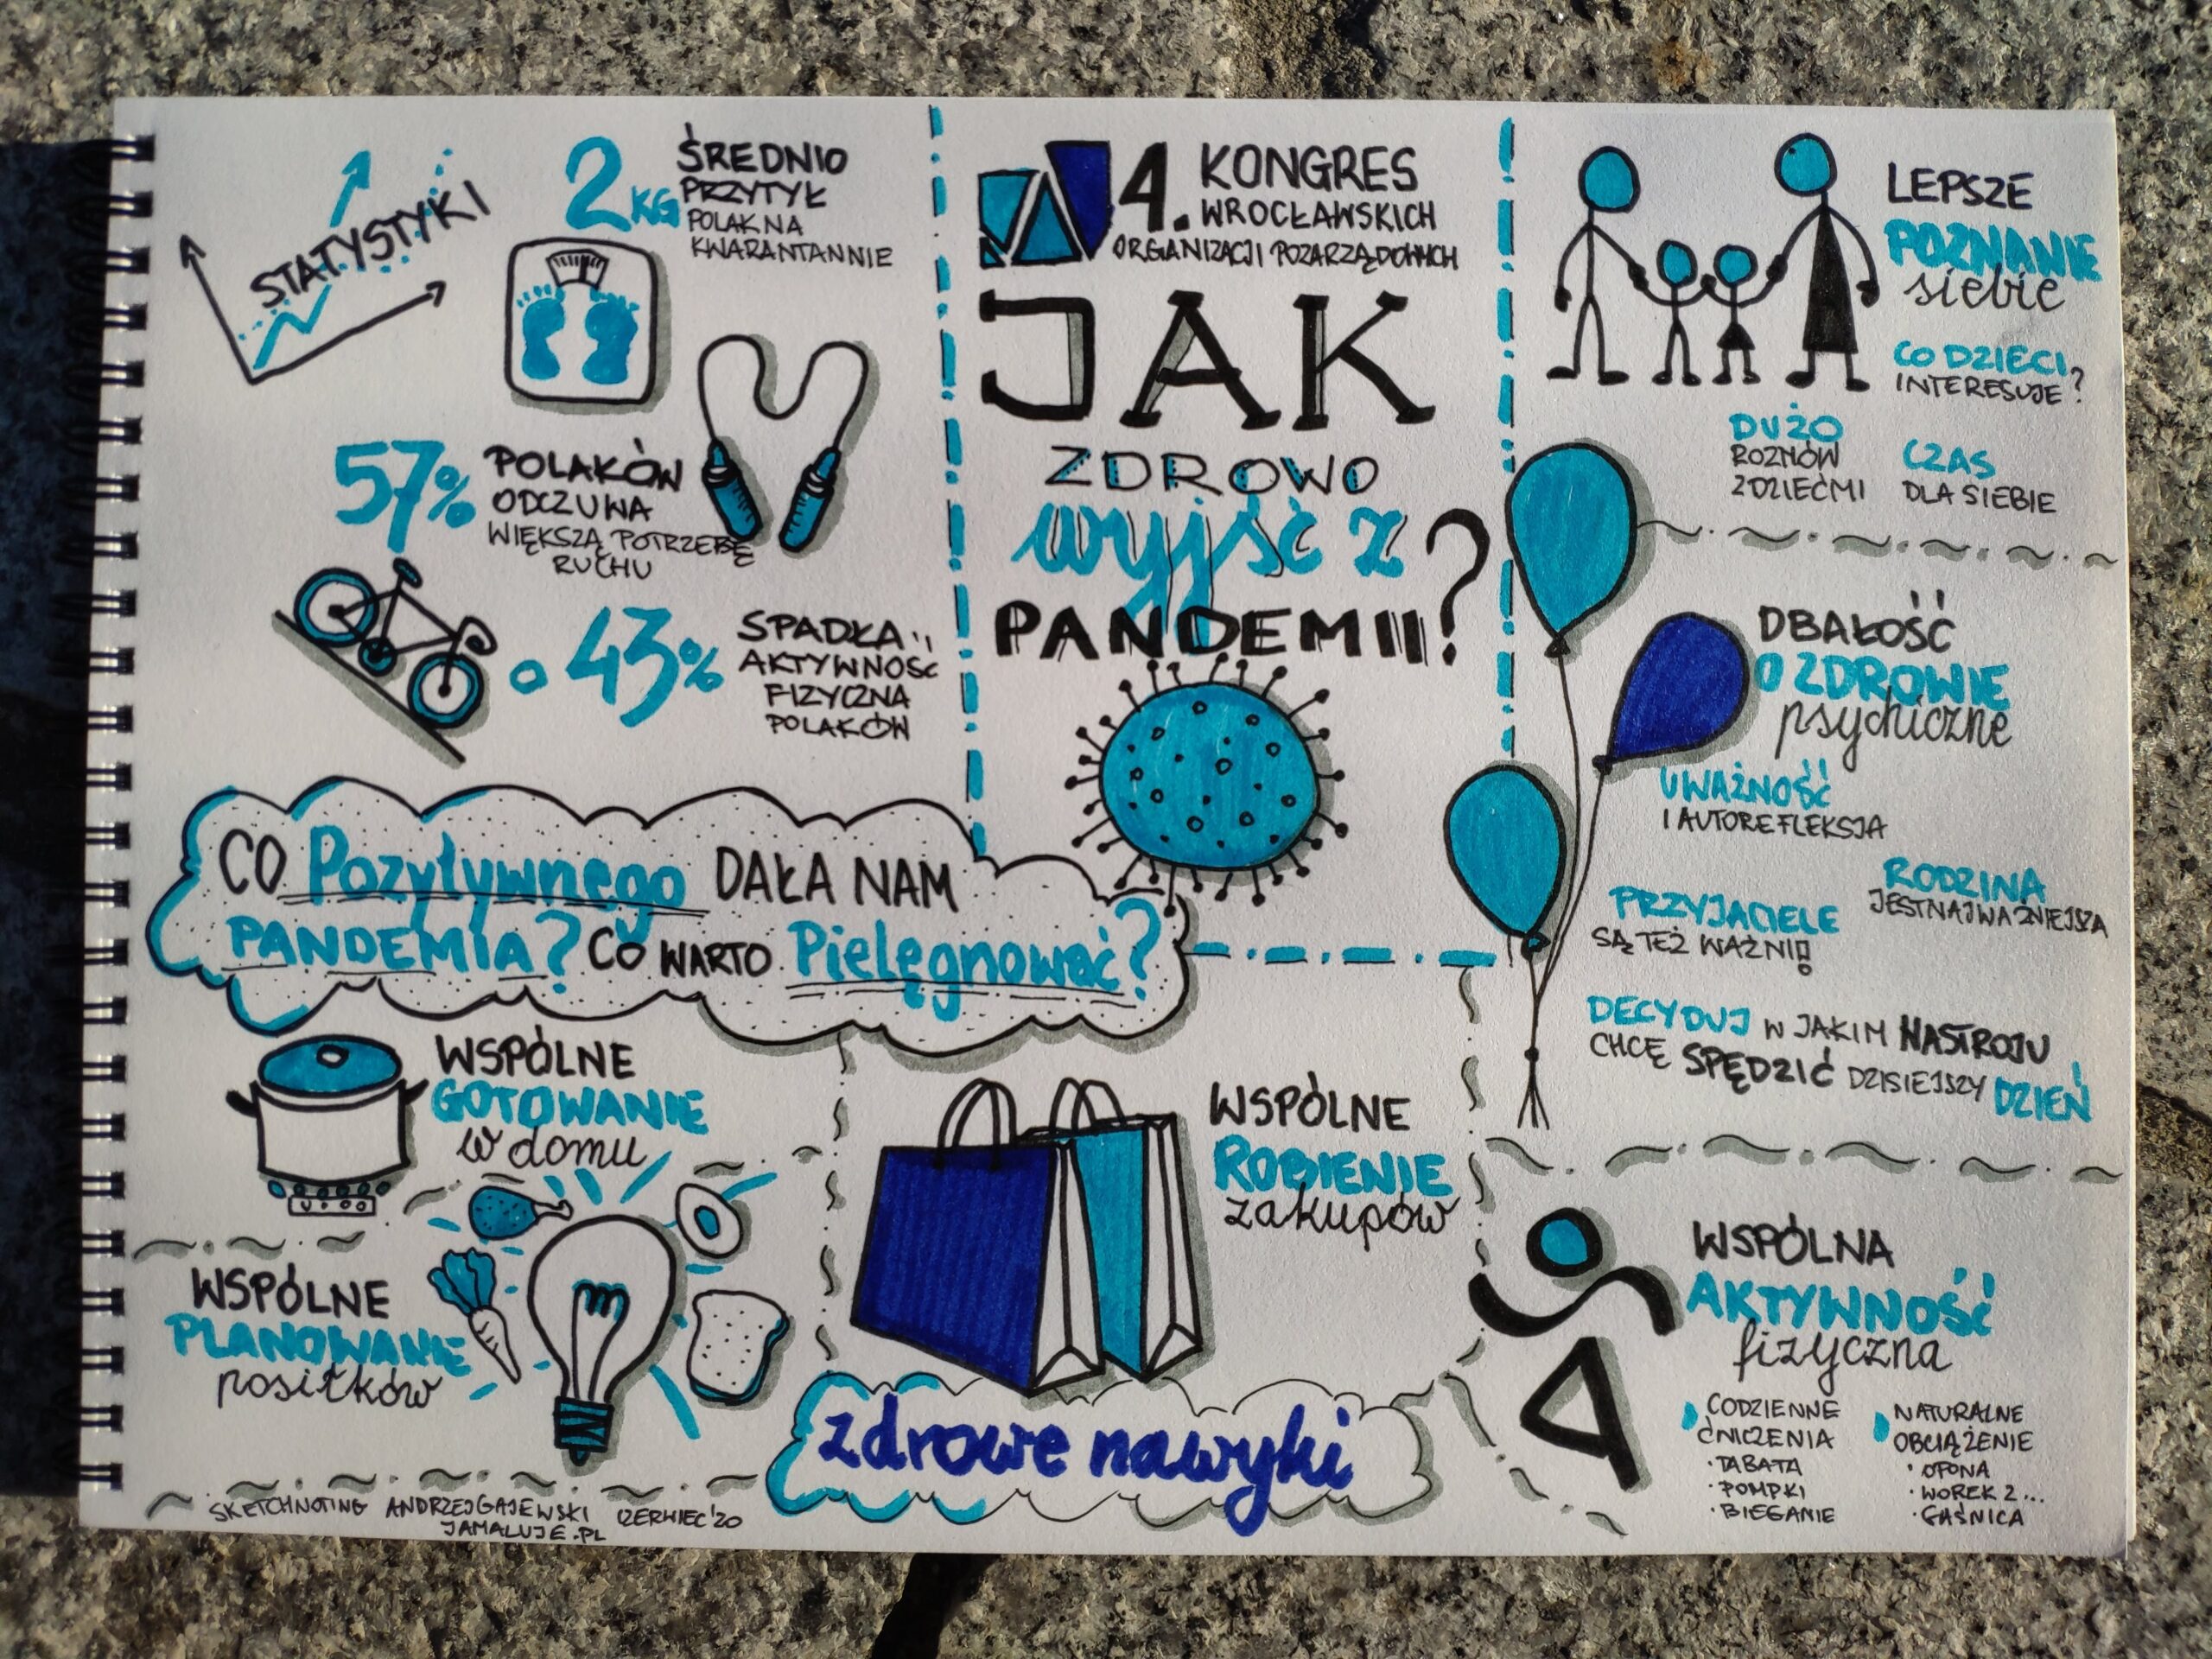 STATYSTYKI
2KG ŚREDNIO
PRZYTYŁ
POLAK NA
KWARANTANNIE
57% POLAKÓW
ODCZUWA
WIĘKSZĄ POTRZEBĘ
RUCHU
O 43% SPADŁA
AKTYWNOŚĆ
FIZYCZNA
POLAKÓW
4. KONGRES
WROCŁAWSKICH
ORGANIZACJI POZARZĄDOWYCH
JAK
ZDROWO
wyjść z
PANDEMII?
LEPSZE
POZNANIE
siebie
CO DZIECI
INTERESUJE?
DUŻO
ROZMÓW
Z DZIEĆMI
CZAS
DLA SIEBIE
DBAŁOŚĆ
O ZDROWIE
psychiczne
UWAŻNOŚĆ
I AUTOREFLEKSJA
RODZINA
JEST NAJWAŻNIEJSZA
PRZYJACIELE
SĄ TEŻ WAŻNI!
DECYDUJ W JAKIM NASTROJU
CHCĘ SPĘDZIĆ DZISIEJSZY DZIEŃ
CO Pozytywnego DAŁA NAM
PANDEMIA? CO WARTO Pielęgnować?
WSPÓLNE
GOTOWANIE
w domu
WSPÓLNE
PLANOWANIE
posiłków
WSPÓLNE
ROBIENIE
zakupów
zdrowe nawyki
WSPÓLNA
AKTYWNOŚĆ
fizyczna
CODZIENNE
ĆWICZENIA
· TABATA
· POMPKI
· BIEGANIE
NATURALNE
OBCIĄŻENIE
· OPONA
· WOREK Z...
· GAŚNICA
SKETCHNOTING ANDRZEJ GAJEWSKI CZERWIEC'20
JAMALUJE.PL